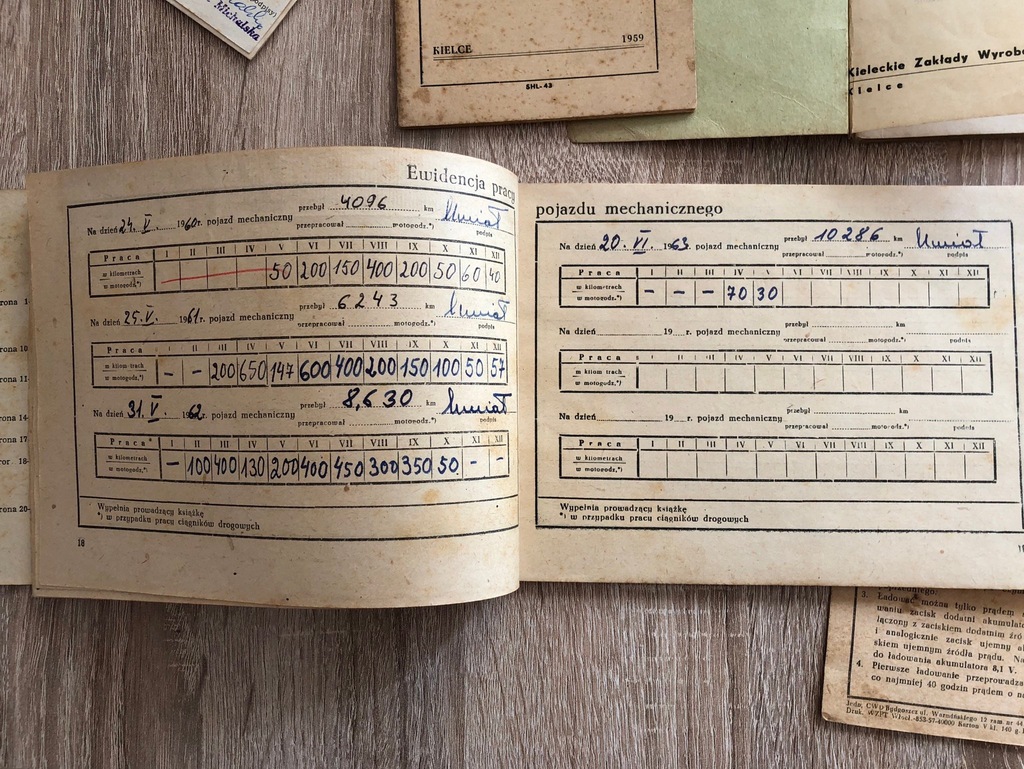 Michalska
KIELCE 1959
SHL-43
Kieleckie Zakłady Wyrob
Kielce
Ewidencja pracy
Na dzień 24. V 1960 r. pojazd mechaniczny przebył 4096 km
przepracował motogodz.*) podpis
Praca I II III IV V VI VII VIII IX X XI XII
w kilometrach
w motogodz.*) 50 200 150 400 200 50 60 40
Na dzień 25. V. 1961 r. pojazd mechaniczny przebył 6243 km
przepracował motogodz.*) podpis
Praca I II III IV V VI VII VIII IX X XI XII
w kilom trach
w motogodz.*) - - 200 650 147 600 400 200 150 100 50 57
Na dzień 31. V 1962 r. pojazd mechaniczny przebył 8,630 km
przepracował motogodz.*) podpis
Praca* I II III IV V VI VII VIII IX X XI XII
w kilometrach
w motogodz.*) - 100 400 130 200 400 450 300 350 50 - -
Wypełnia prowadzący książkę
*) w przypadku pracy ciągników drogowych
18
pojazdu mechanicznego
Na dzień 20. VI. 1963 r. pojazd mechaniczny przebył 10286 km
przepracował motogodz.*) podpis
Praca I II III IV V VI VII VIII IX X XI XII
w kilometrach
w motogodz.*) - - - 70 30
Na dzień 19 r. pojazd mechaniczny przebył km
przepracował motogodz.*) podpis
Praca I II III IV V VI VII VIII IX X XI XII
w kilom trach
w motogodz.*)
Na dzień 19 r. pojazd mechaniczny przebył km
przepracował motogodz.*) podpis
Praca I II III IV V VI VII VIII IX X XI XII
w kilometrach
w motogodz.*)
Wypełnia prowadzący książkę
*) w przypadku pracy ciągników drogowych
rona 1-
rona 10
rona 11
rona 14
rona 17
ror. 18-
rona 20-
3. Ładować można tylko prądem
waniu zacisk dodatni akumula
łączony z zaciskiem dodatnim źró
i analogicznie zacisk ujemny a
skiem ujemnym źródła prądu. Na
do ładowania akumulatora 8,1 V.
4. Pierwsze ładowanie przeprowadza
co najmniej 40 godzin prądem o n